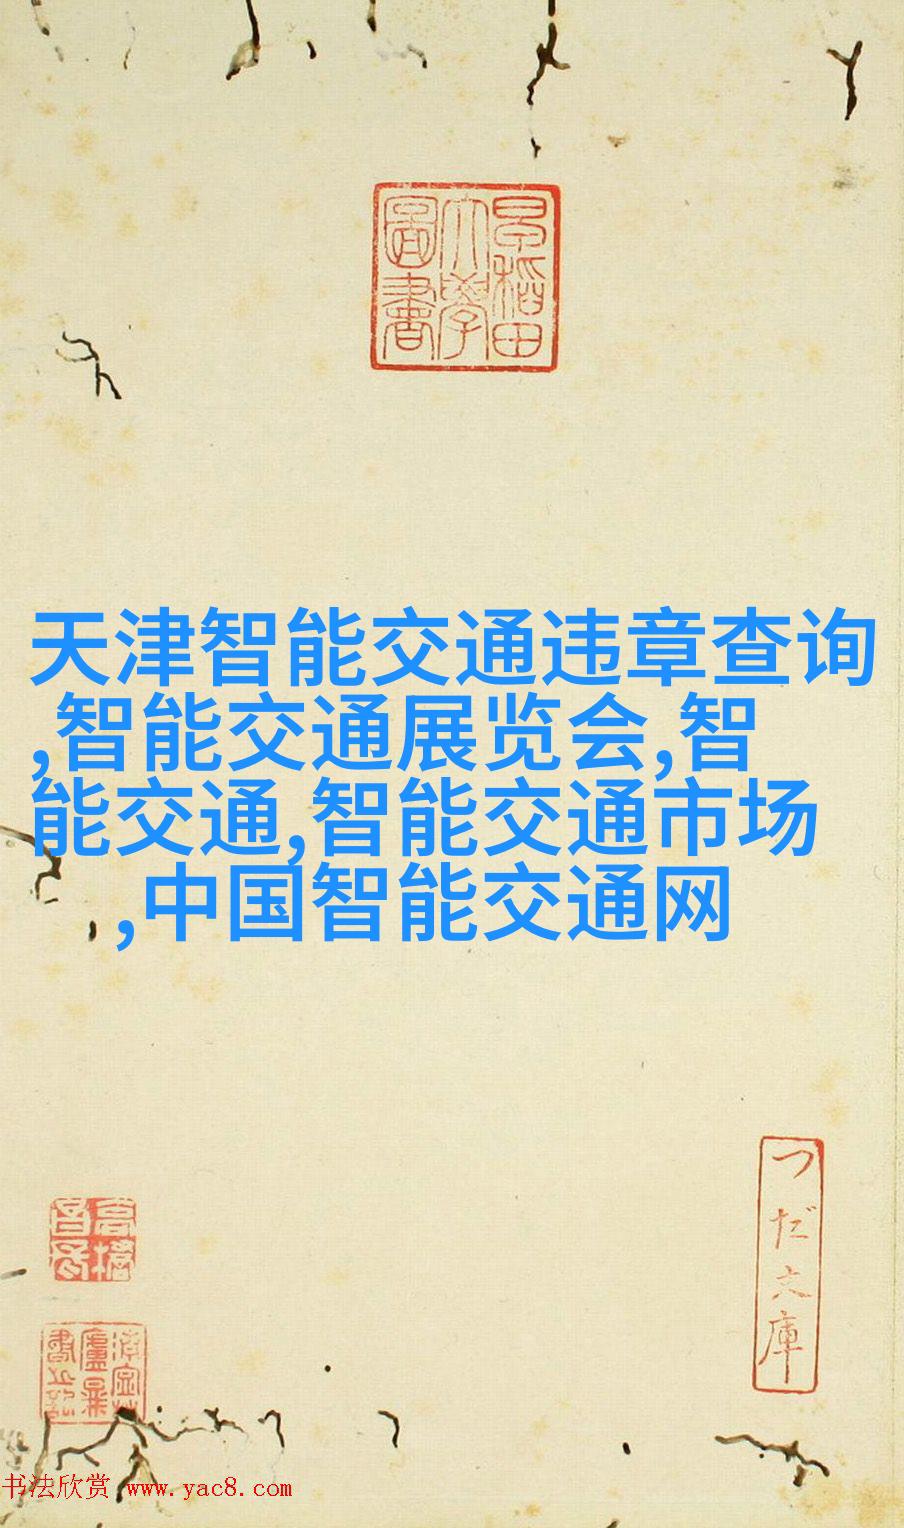 早稲田
大學
圖書
天津智能交通违章查询
,智能交通展览会,智
能交通,智能交通市场
,中国智能交通网
つだ文庫
书法欣赏 www.yac8.com